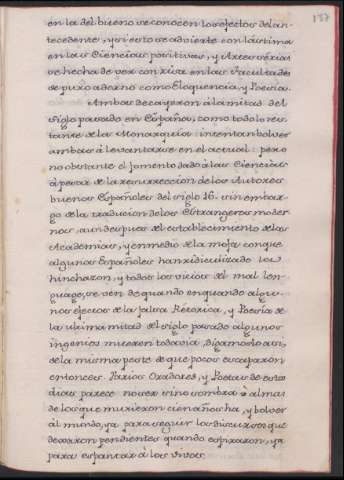 137
en la del bueno se conocen los efectos del an-
tecedente, y si esto se advierte con lástima
en las Ciencias positivas, y Artes sérias
se hecha de ver con risa en las Facultades
de puro adorno como Eloquencia, y Poesía.
Ambas decayeron à la mitad del
siglo pasado en España, como todo lo res-
tante de la Monarquía: intentan bolver
ambas à levantarse en el actual: pero
no obstante el fomento dado à las Ciencias
à pesar de la resurreccion de los Autores
buenos Españoles del siglo 16. sin embar-
go de la traducion de los Estrangeros moder-
nos, aun despues del establecimiento de las
Academias, y en medio de la mofa con que
algunos Españoles han ridiculizado la
hinchazon, y todos los vicios del mal len-
guage, se ven de quando en quando algu-
nos efectos de la falsa Retorica, y Poesía de
la ultima mitad del siglo pasado algunos
ingenios mueren todavia, digamoslo asi,
de la misma peste de que pocos escaparon
entonces. Varios Oradores, y Poetas de estos
dias parece no ser sino sombras ò almas
de los que murieron cien años ha, y bolver
al mundo, ya para seguir los discursos que
dexaron pendientes quando espiraron, ya
para espantar à los vivos.